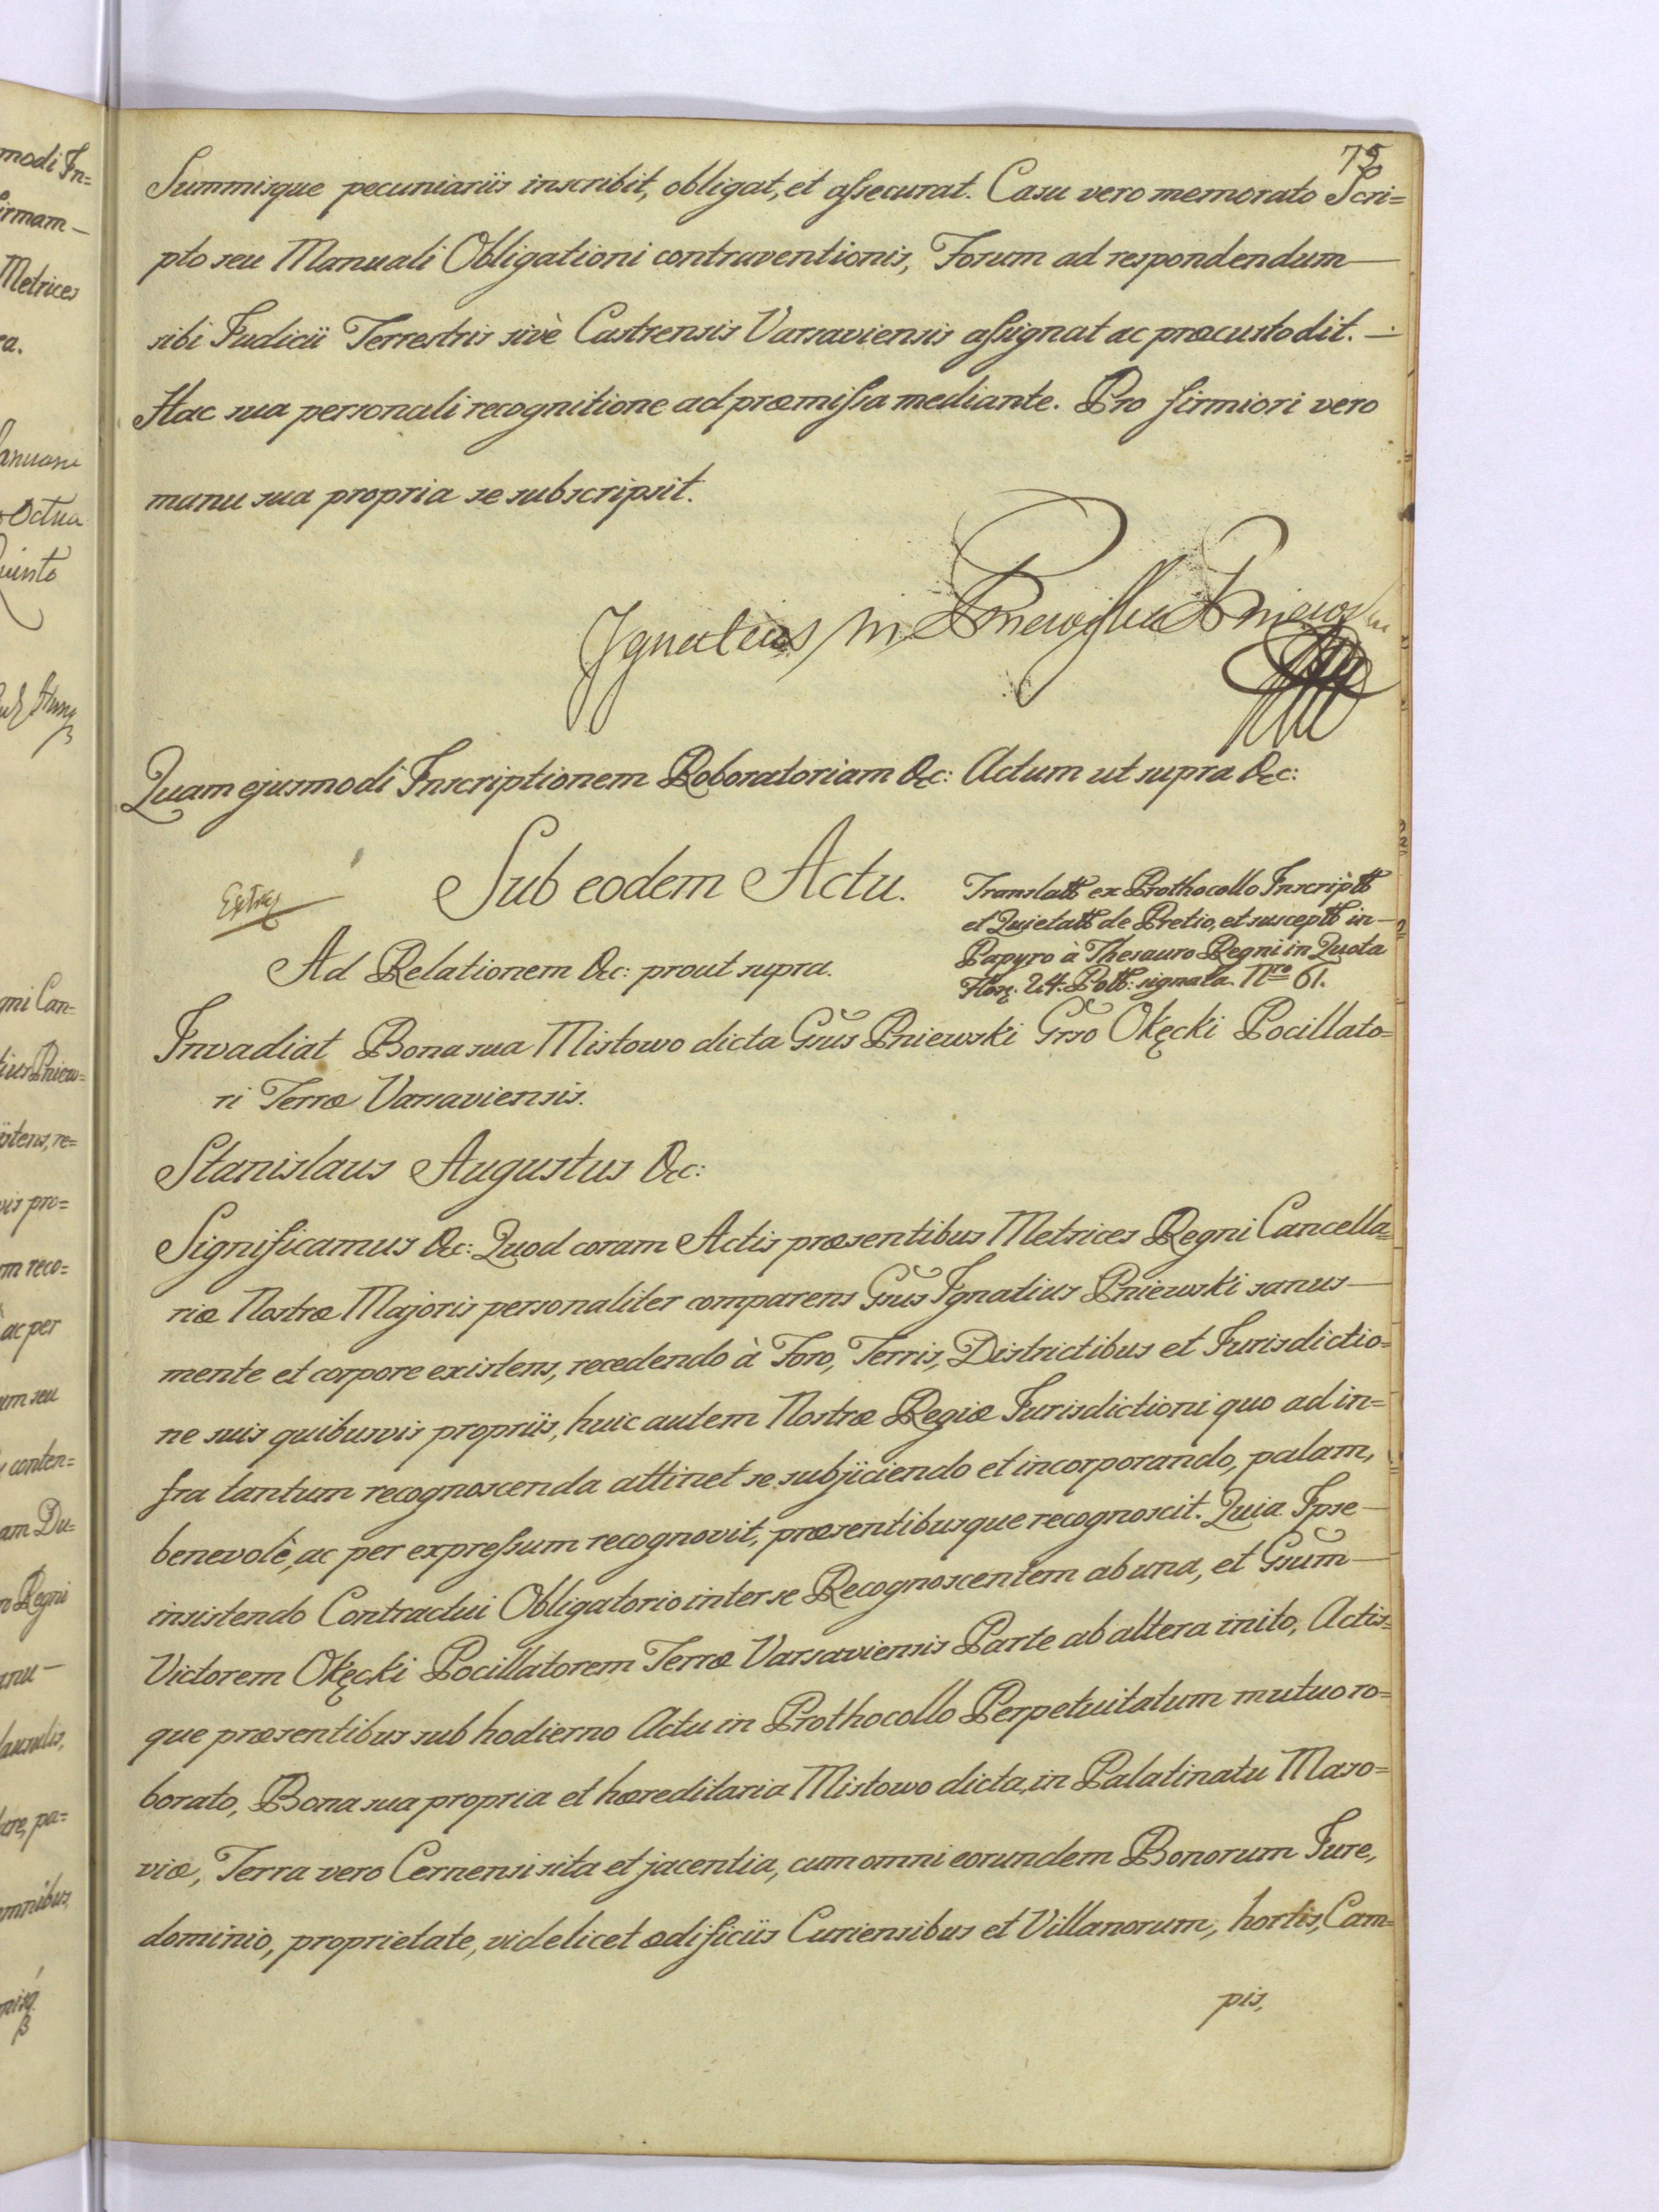 75
Summisque pecuniariis inscribit, obligat, et assecurat. Casu vero memorato Scri=
pto seu Manuali Obligationi contraventionis, Forum ad respondendum —
sibi Judicii Terrestris sivè Castrensis Varsaviensis assignat ac præcustodit. —
Hac sua personali recognitione ad præmissa mediante. Pro firmiori vero
manu sua propria se subscripsit.
Ignatius in Pniewo
Quam ejusmodi Inscriptionem Roboratoriam &c: Actum ut supra &c:
Sub eodem Actu.
Translatt ex Prothocollo Inscriptt
et Quietatt de Pretio, et susceptt in —
Papyro à Thesauro Regni in Quota
Flor. 24. Poll: signata. Nro 61.
Ad Relationem &c: prout supra.
Invadiat Bona sua Mistowo dicta Gsus Pniewski Grso Okęcki Pocillato=
ri Terræ Varsaviensis.
Stanislaus Augustus &c:
Significamus &c: Quod coram Actis præsentibus Metrices Regni Cancella=
riæ Nostræ Majoris personaliter comparens Gsus Ignatius Pniewski sanus —
mente et corpore existens, recedendo à Foro, Terris, Districtibus et Jurisdictio=
ne suis quibusvis propriis, huic autem Nostræ Regiæ Jurisdictioni quo ad in=
fra tantum recognoscenda attinet se subjiciendo et incorporando, palam,
benevolè, ac per expressum recognovit, præsentibusque recognoscit. Quia Ipse —
insistendo Contractui Obligatorio inter se Recognoscentem ab una, et Gsum —
Victorem Okęcki Pocillatorem Terræ Varsaviensis Parte ab altera inito, Actis=
que præsentibus sub hodierno Actu in Prothocollo Perpetuitatum mutuo ro=
borato, Bona sua propria et hæreditaria Mistowo dicta, in Palatinatu Maso=
viæ, Terra vero Cernensi sita et jacentia, cum omni eorundem Bonorum Jure,
dominio, proprietate, videlicet ædificiis Curiensibus et Villanorum, hortis, Cam=
pis,